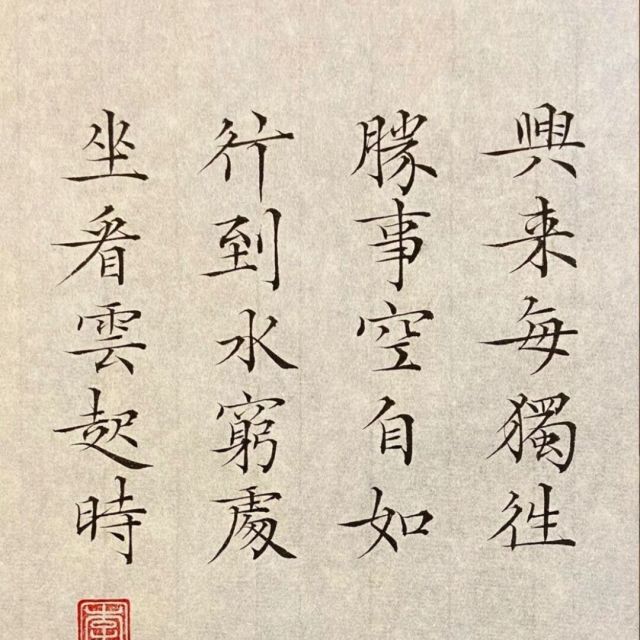 興来每獨往
勝事空自如
行到水窮處
坐看雲起時